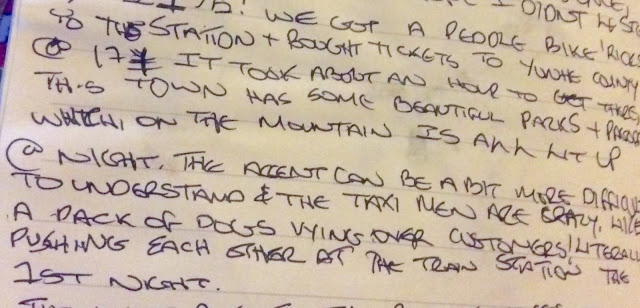 I DIDNT
! WE GOT A PEOPLE BIKE RICK
TO THE STATION + BOUGHT TICKETS TO YUNHE COUNTY
@ 17¥ IT TOOK ABOUT AN HOUR TO GET THERE,
THIS TOWN HAS SOME BEAUTIFUL PARKS +
WHICH ON THE MOUNTAIN IS ALL LIT UP
@ NIGHT. THE ACCENT CAN BE A BIT MORE DIFFICUL
TO UNDERSTAND & THE TAXI MEN ARE CRAZY, LIKE
A PACK OF DOGS VYING OVER CUSTOMERS! LITERALL
PUSHING EACH OTHER AT THE TRAIN STATION THE
1ST NIGHT.